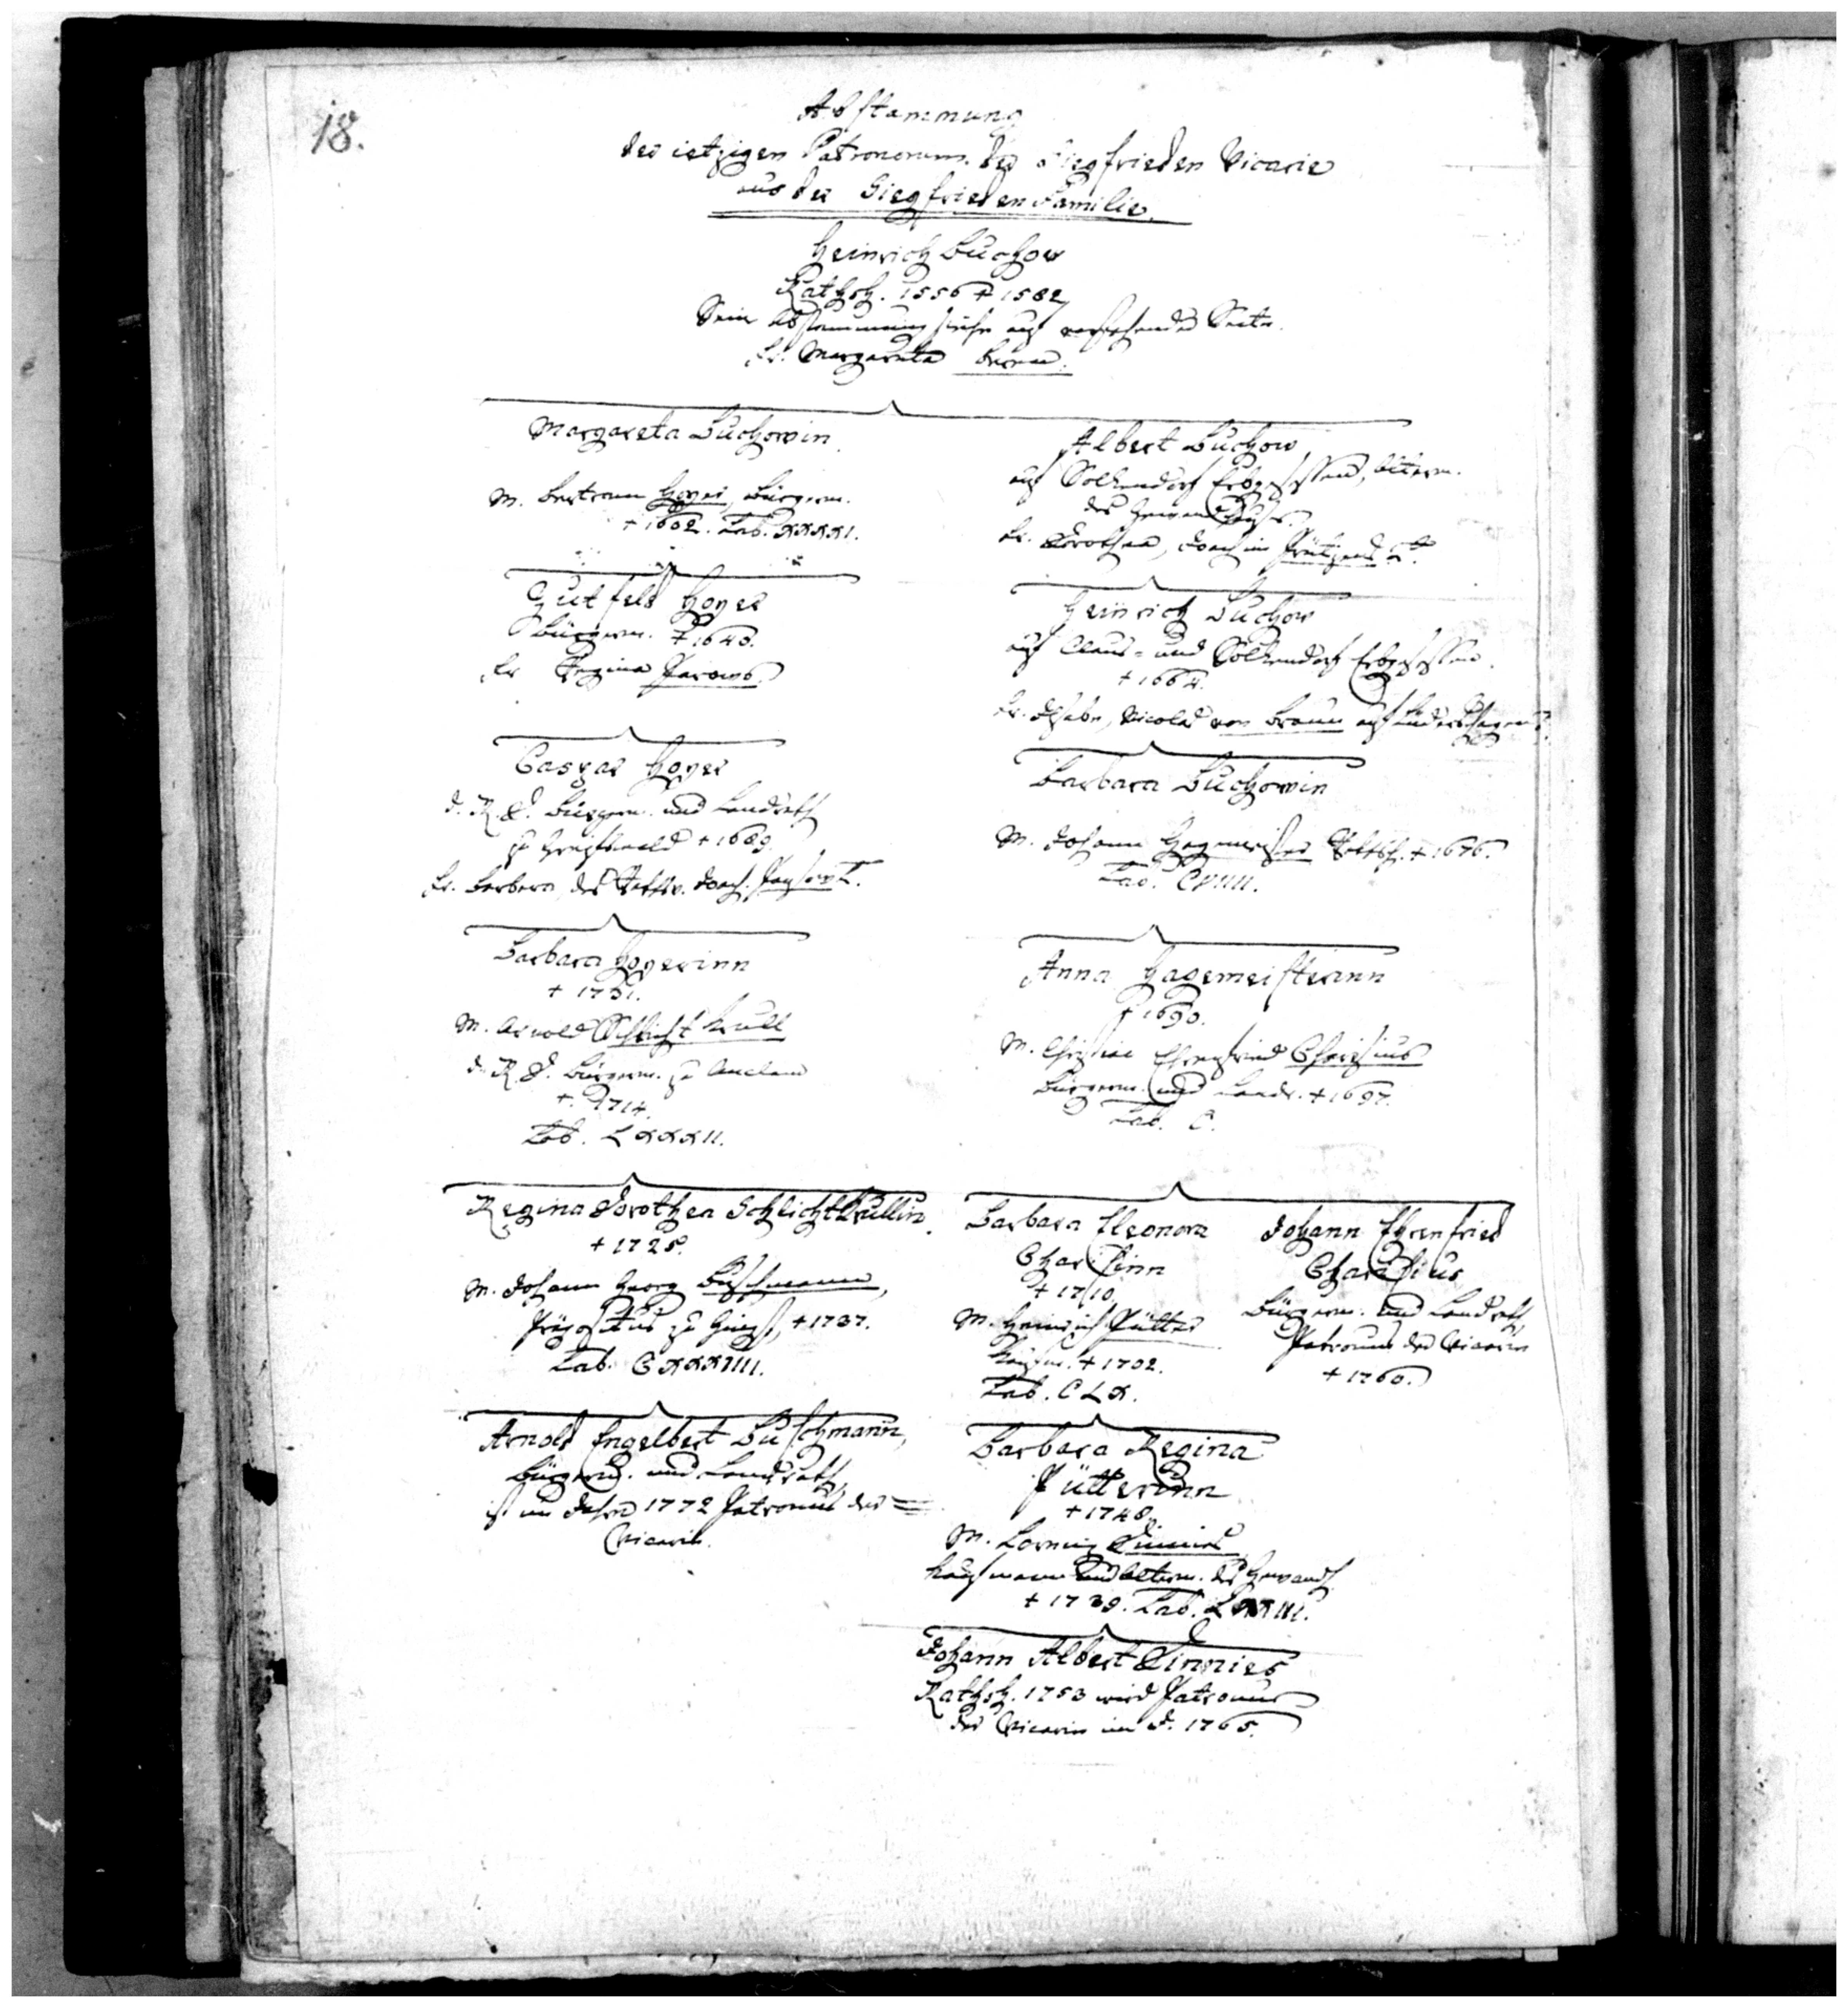 18.
Abstammung
der ietzigen Patronorum der Siegfrieden Vicarie
aus der Siegfrieden Familie.
Heinrich Buchow
Rathsh. 1556 + 1582
Sein Abstammung siehe auf vorstehender Seite.
Fr. Margareta
Margareta Buchowin
M. Bertram Hoyer, Bürgerm.
+ 1602. Tab. XXXXI.
Gutfeld Hoyer
Bürgerm. + 1648.
Fr. Regina Parows.
Caspar Hoyer
d. R. D. Bürgerm. und Landrath
zu Greifswald + 1689.
Fr. Barbara, des Rathsv. Joach.
Barbara Hoyerinn
+ 1731.
M. Arnold Schlichtkrull
d. R. D. Bürgerm. zu Anclam
+ 1714.
Tab. LXXXII.
Regina Dorothea Schlichtkrullin
+ 1725.
M. Johann Georg Buschmann,
Präpositus zu Gingst, + 1737.
Tab. CXXXIIII.
Arnold Engelbert Buschmann,
Bürgerm. und Landrath,
ist im Jahre 1772 Patronus der
Vicarie.
Albert Buchow
auf Solkendorf Erbgesessen, Alterm.
des Gewandhauses.
Fr. Dorothea, Joachim
Heinrich Buchow
auf Claus- und Solkendorf Erbgesessen.
+ 1664.
Fr. Ilsabe, Nicolas von Braun auf Lüdershagen
Barbara Buchowin
M. Johann Hagemeister Rathsh. + 1676.
Tab. CVIIII.
Anna Hagemeisterinn
+ 1690.
M. Christian Ehrenfried Charisius
Bürgerm. und Landr. + 1697.
Tab. C.
Barbara Eleonora
Charisinn
+ 1710.
M. Heinrich Pütter
Kaufm. + 1702.
Tab. CLX.
Johann Ehrenfried
Charisius
Bürgerm. und Landrath,
Patronus der Vicarie
+ 1760.
Barbara Regina
Pütterinn
+ 1748.
M. Lorenz Dinnies
Kaufmann und Alterm. des Gewandh.
+ 1739. Tab. LXXIII.
Johann Albert Dinnies
Rathsh. 1753 wird Patronus
der Vicarie im J. 1765.